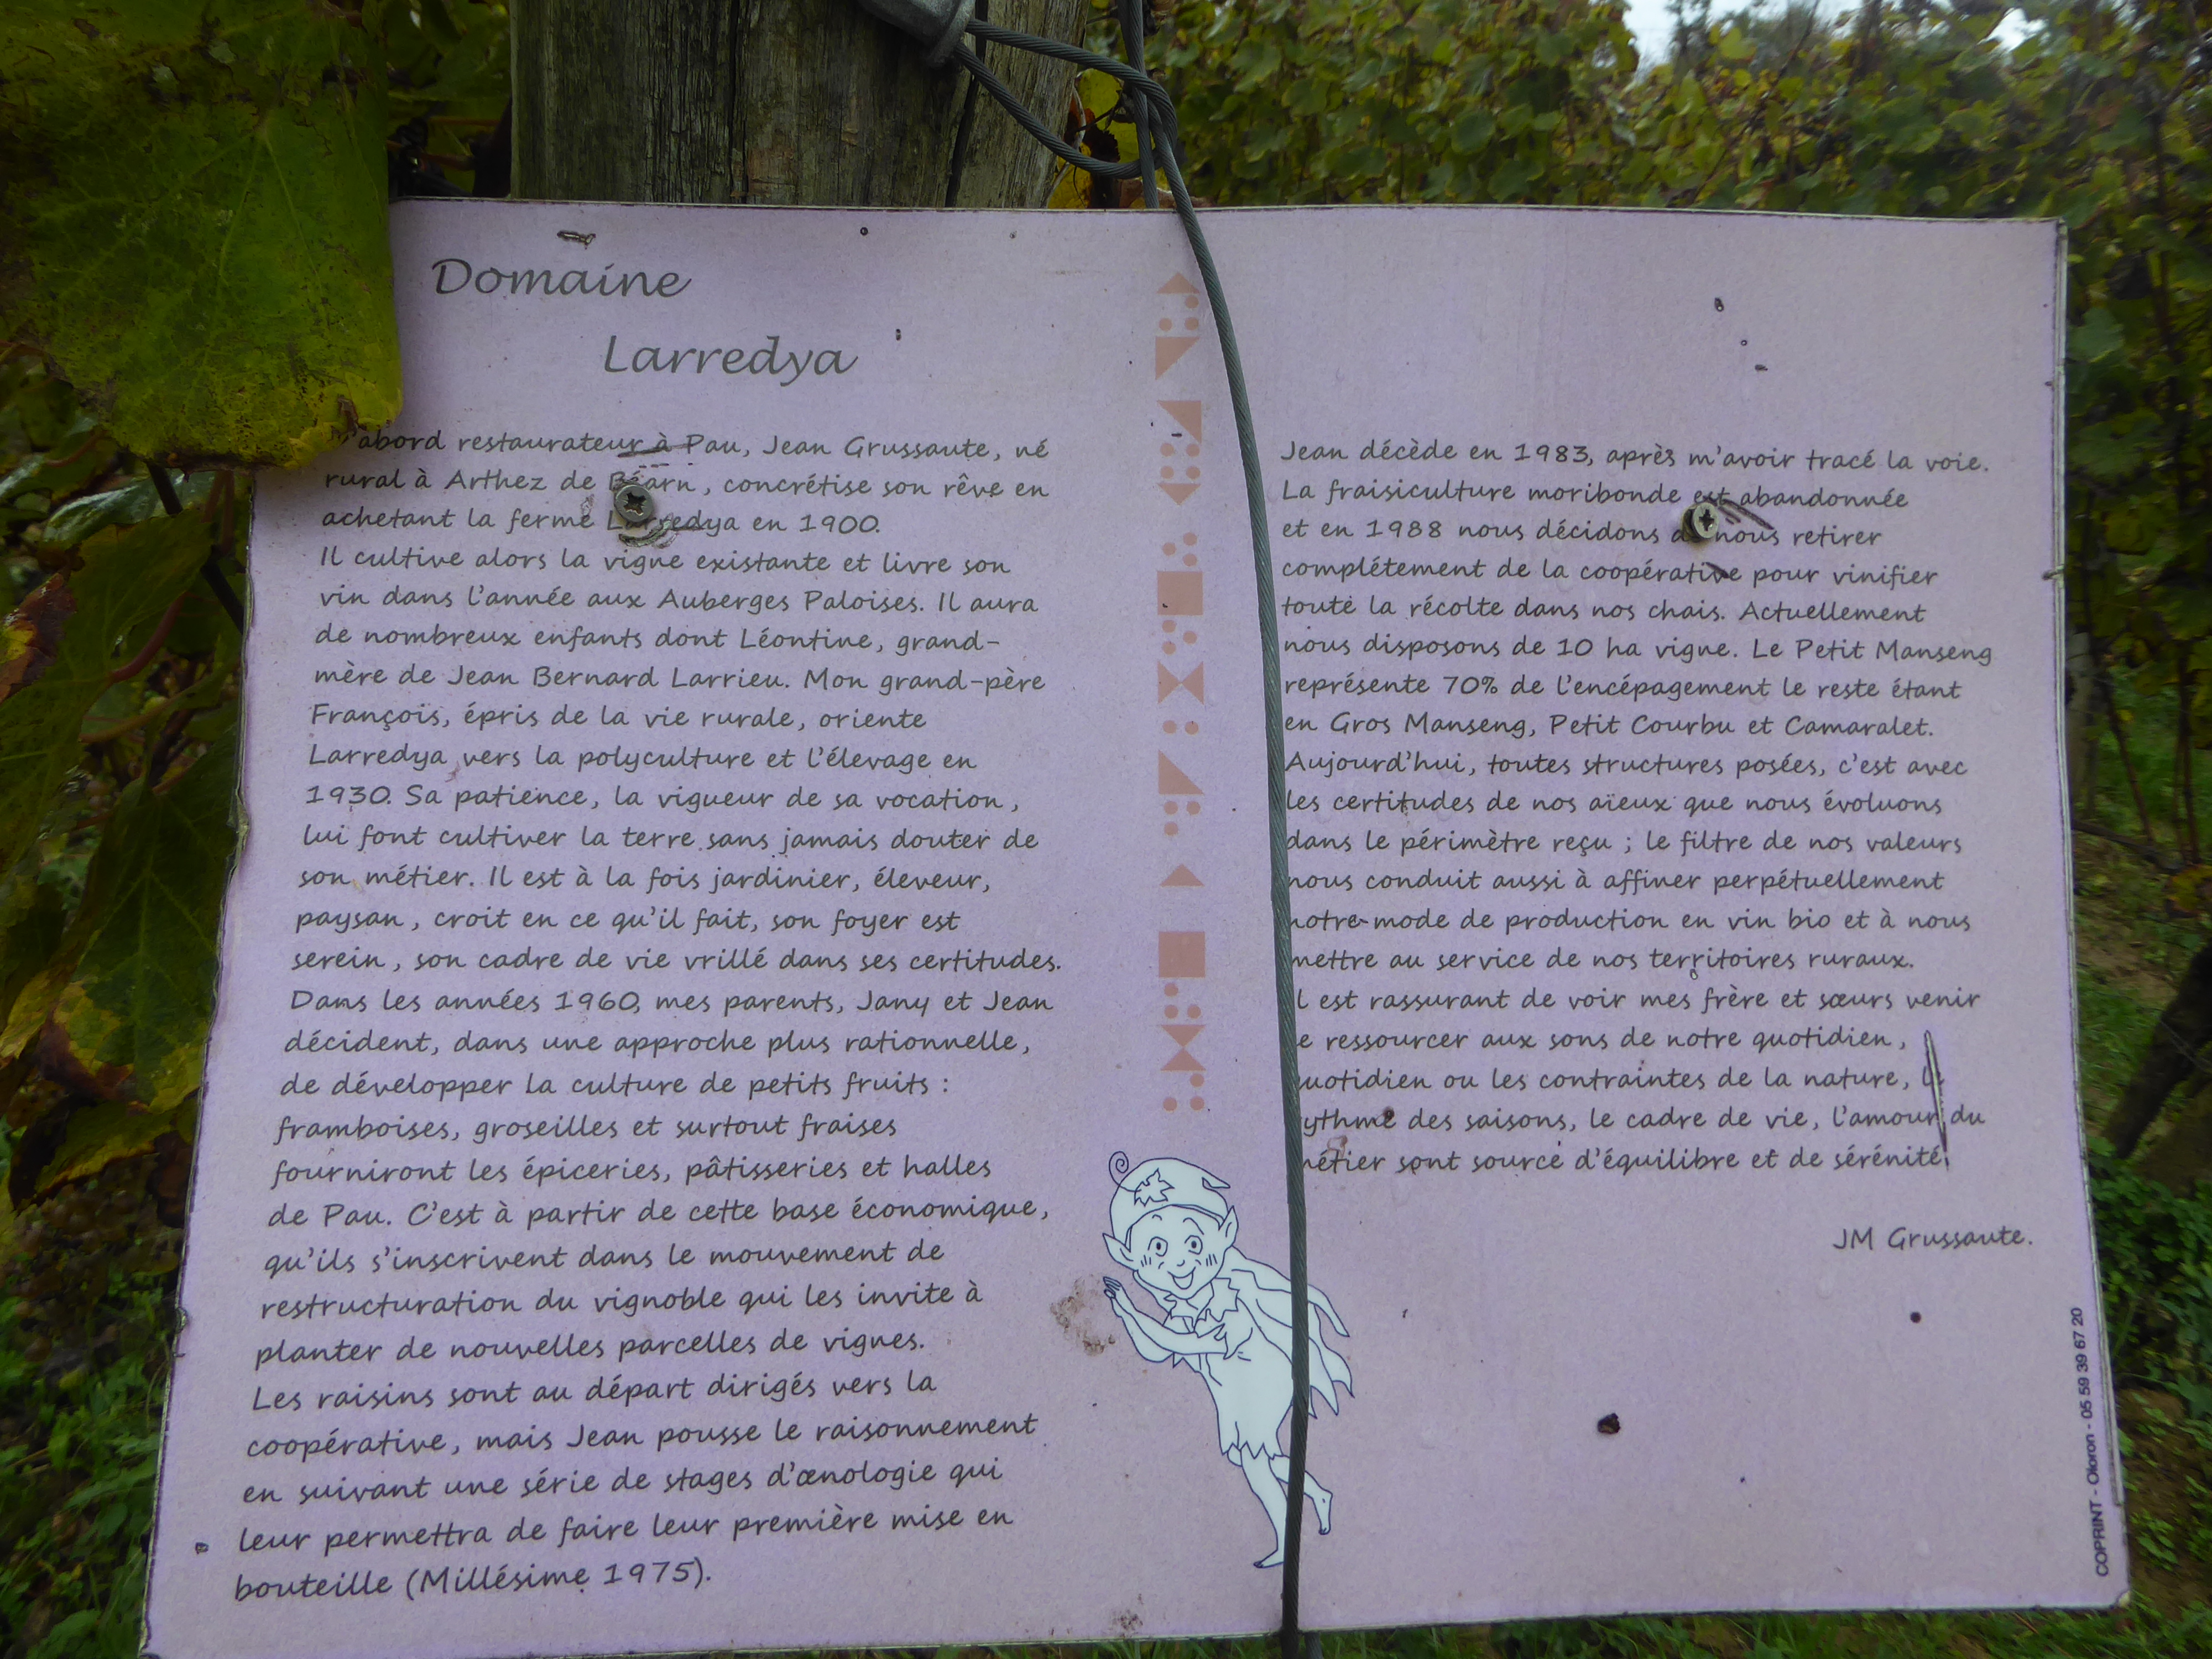 Domaine
Larredya
abord restaurateur à Pau, Jean Grussaute, né
rural à Arthez de Béarn, concrétise son rêve en
achetant la ferme Larredya en 1900.
Il cultive alors la vigne existante et livre son
vin dans l'année aux Auberges Paloises. Il aura
de nombreux enfants dont Léontine, grand-
mère de Jean Bernard Larrieu. Mon grand-père
François, épris de la vie rurale, oriente
Larredya vers la polyculture et l'élevage en
1930. Sa patience, la vigueur de sa vocation,
lui font cultiver la terre sans jamais douter de
son métier. Il est à la fois jardinier, éleveur,
paysan, croit en ce qu'il fait, son foyer est
serein, son cadre de vie vrillé dans ses certitudes.
Dans les années 1960, mes parents, Jany et Jean
décident, dans une approche plus rationnelle,
de développer la culture de petits fruits :
framboises, groseilles et surtout fraises
fourniront les épiceries, pâtisseries et halles
de Pau. C'est à partir de cette base économique,
qu'ils s'inscrivent dans le mouvement de
restructuration du vignoble qui les invite à
planter de nouvelles parcelles de vignes.
Les raisins sont au départ dirigés vers la
coopérative, mais Jean pousse le raisonnement
en suivant une série de stages d'œnologie qui
leur permettra de faire leur première mise en
bouteille (Millésime 1975).
Jean décède en 1983, après m'avoir tracé la voie.
La fraisiculture moribonde est abandonnée
et en 1988 nous décidons de nous retirer
complétement de la coopérative pour vinifier
toute la récolte dans nos chais. Actuellement
nous disposons de 10 ha vigne. Le Petit Manseng
représente 70% de l'encépagement le reste étant
en Gros Manseng, Petit Courbu et Camaralet.
Aujourd'hui, toutes structures posées, c'est avec
les certitudes de nos aïeux que nous évoluons
dans le périmètre reçu ; le filtre de nos valeurs
nous conduit aussi à affiner perpétuellement
notre mode de production en vin bio et à nous
mettre au service de nos territoires ruraux.
Il est rassurant de voir mes frère et sœurs venir
se ressourcer aux sons de notre quotidien,
quotidien ou les contraintes de la nature, le
rythme des saisons, le cadre de vie, l'amour du
métier sont source d'équilibre et de sérénité.
JM Grussaute.
COPRINT - Oloron - 05 59 39 67 20